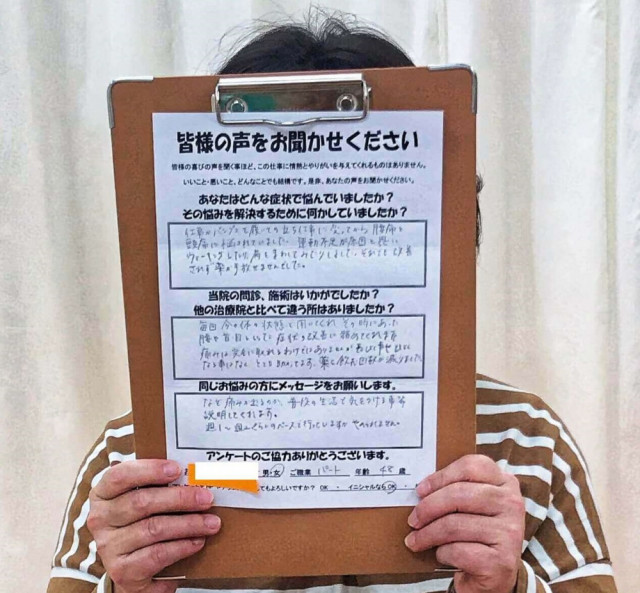 皆様の声をお聞かせください
皆様の喜びの声を聞く事ほど、この仕事に情熱とやりがいを与えてくれるものはありません。
いいこと・悪いこと、どんなことでも結構です。是非、あなたの声をお聞かせください。
あなたはどんな症状で悩んでいましたか？
その悩みを解決するために何かしていましたか？
仕事がパンプスを履いての立ち仕事に変ってから腰痛と
頭痛に悩まされていました。運動不足が原因と思い
ウォーキングしたり肩をまわしてみたりしました。それでも改善
されず薬が手放せませんでした。
当院の問診、施術はいかがでしたか？
他の治療院と比べて違う所はありましたか？
毎回今の体の状態を聞いてくれ その時にあった
腰や首肩をして 症状の改善に努めてくれます
痛みは完全に取れるわけではありませんが
なる事はなく とても助かってます。薬を飲む回数が減りました
同じお悩みの方にメッセージをお願いします。
なぜ痛みが出るのか、普段の生活で気をつける事等
説明してくれます。
週1〜
アンケートのご協力ありがとうございます。
男・女 ご職業 パート 年齢 48 歳
てもよろしいですか？ OK ・ イニシャルならOK ・